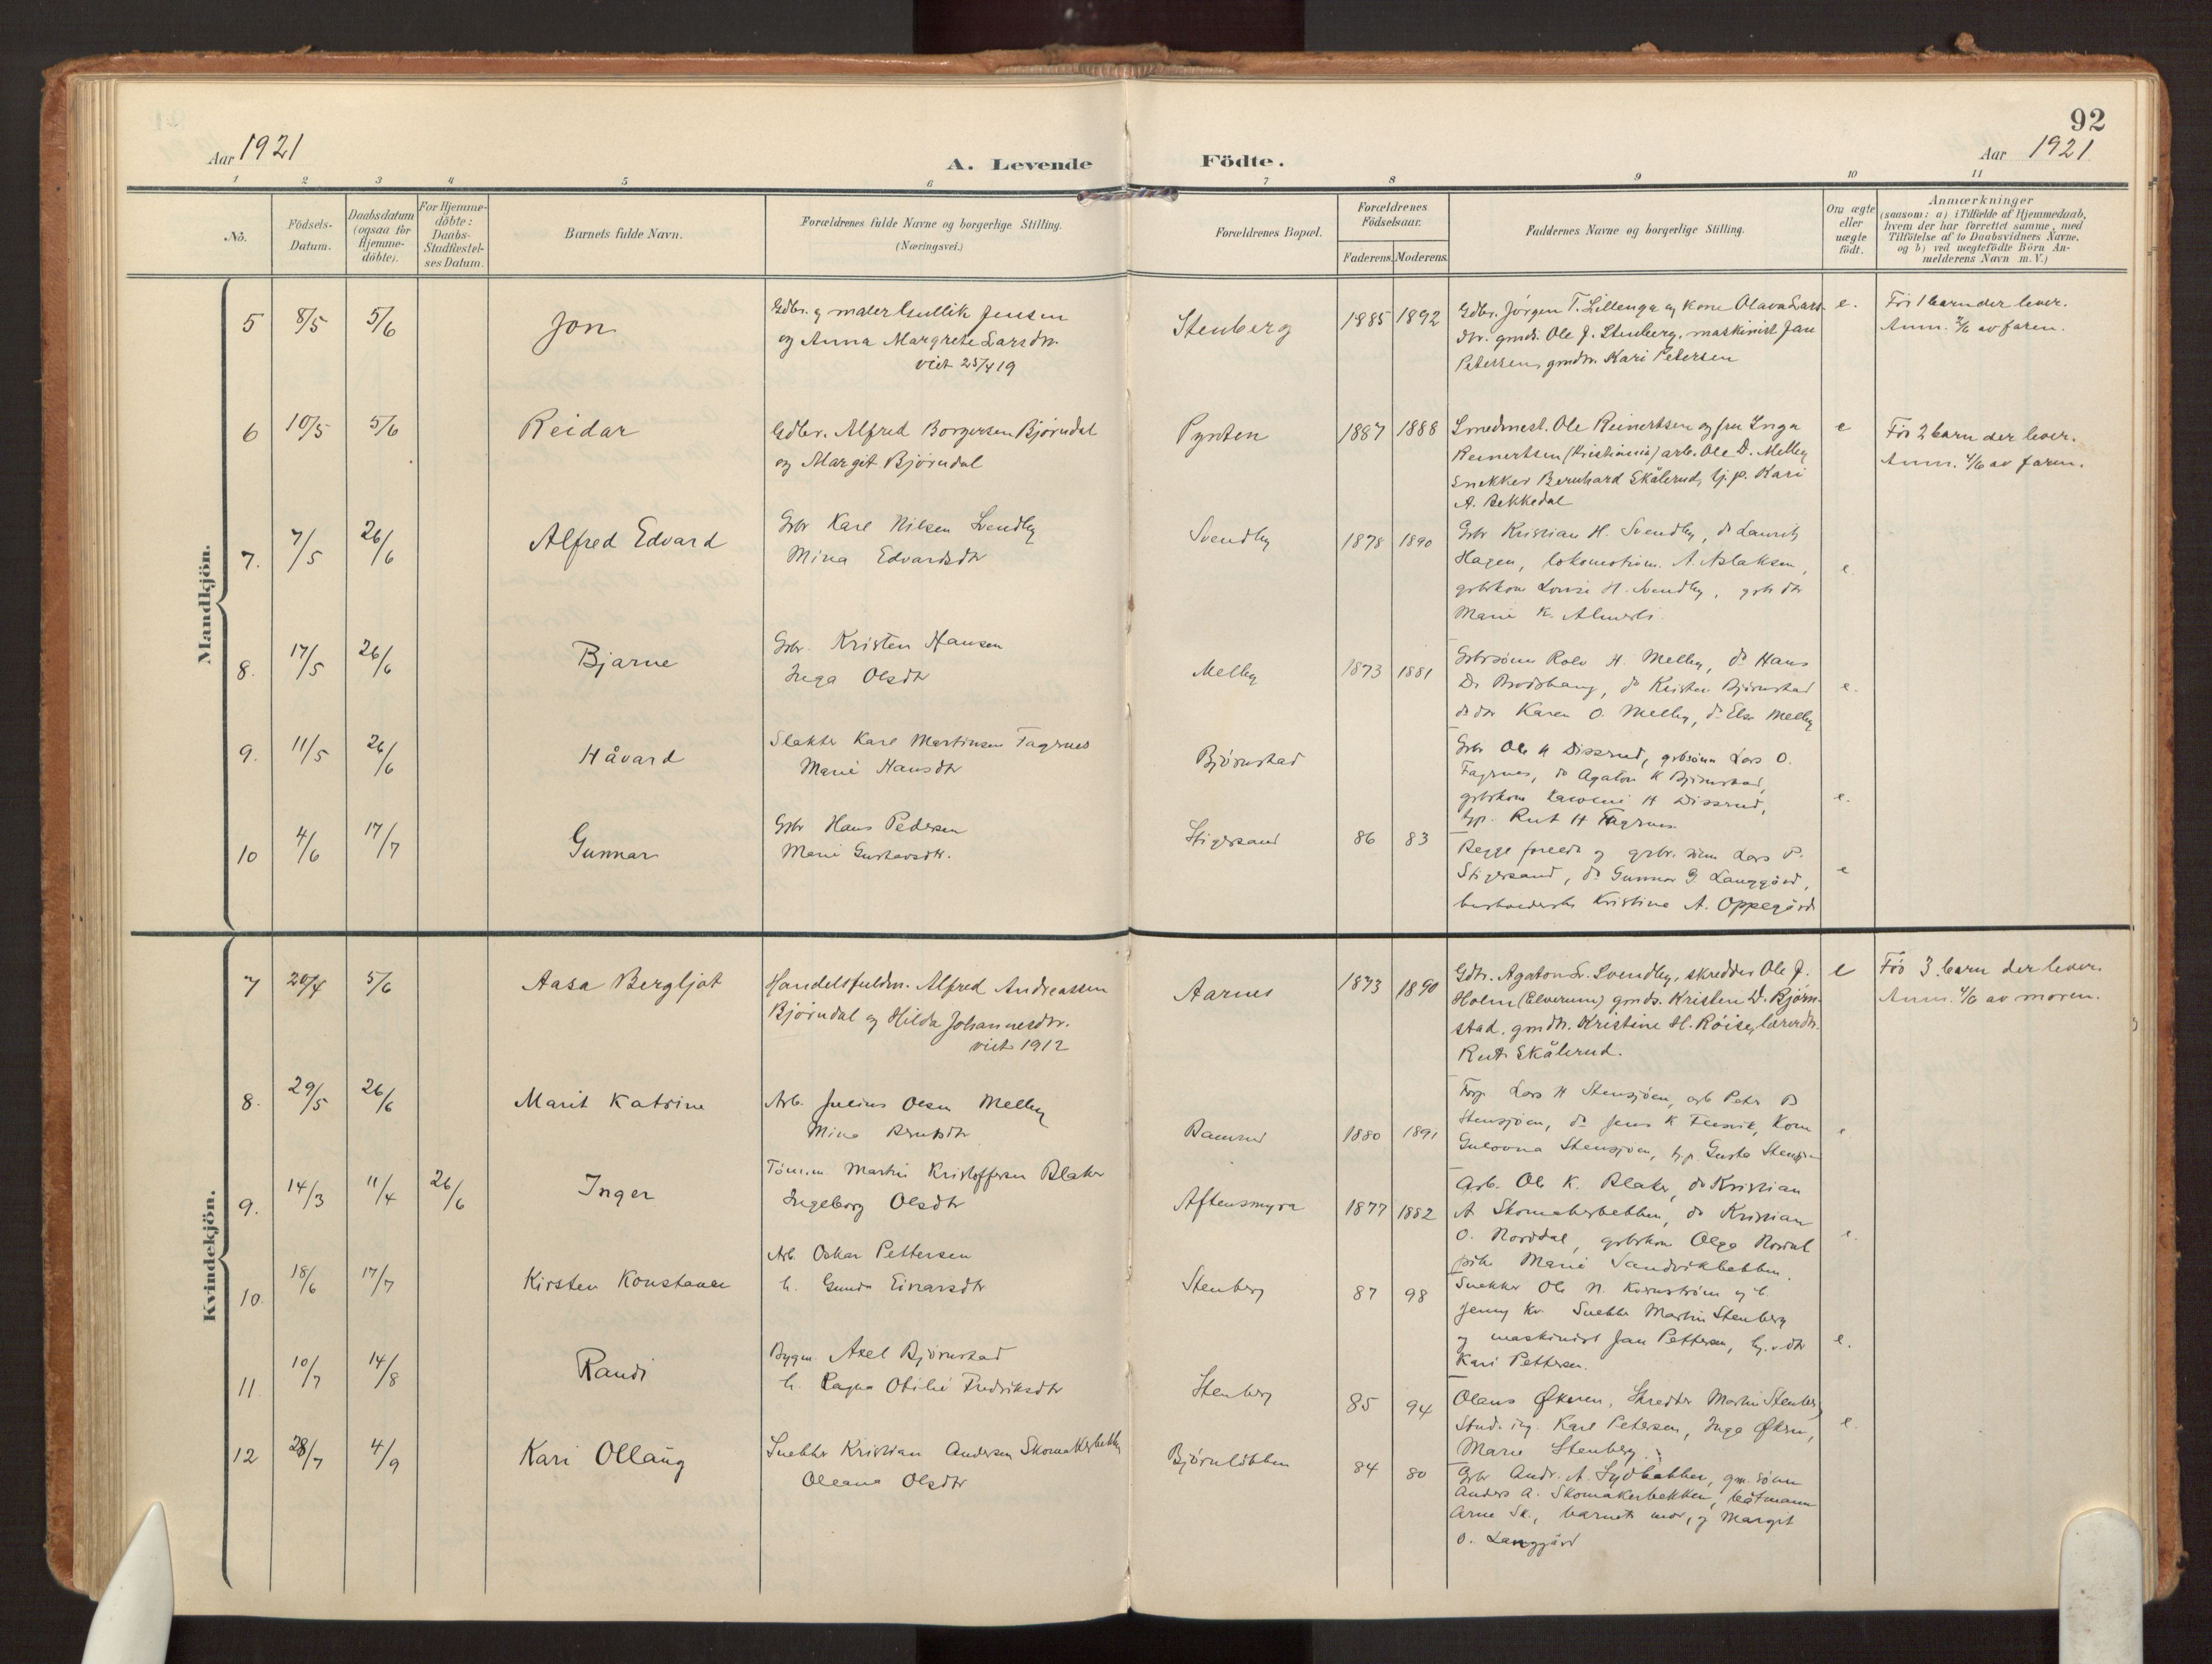 92
Aar 1921
A. Levende Födte.
Aar 1921
1 2 3 4 5 6 7 8 9 10 11
No.
Födsels-
Datum.
Daabsdatum
(ogsaa for
Hjemme-
döbte).
For Hjemme-
döbte:
Daabs-
Stadfæstel-
ses Datum.
Barnets fulde Navn.
Forældrenes fulde Navne og borgerlige Stilling.
(Næringsvei.)
Forældrenes Bopæl.
Forældrenes
Födselsaar.
Faderens. Moderens.
Faddernes Navne og borgerlige Stilling.
Om ægte
eller
uægte
födt.
Anmærkninger
(saasom: a) i Tilfælde af Hjemmedaab,
hvem der har forrettet samme, med
Tilföielse af to Daabsvidners Navne,
og b) ved uægtefödte Börn An-
melderens Navn m. V.)
Mandkjön.
5 8/5 5/6 Jon
Gdbr. og maler Gullik Jensen
og Anna Margrete Larsdtr.
viet 25/4 19
Stenberg 1885 1892
Gdbr. Jörgen T. Lillenga og kone Olava Lars-
dtr. gmds. Ole J. Stenberg, maskinist Jan
Petersen, gmdtr. Kari Petersen
e.
För 1 barn der lever.
Anm. 2/6 av faren.
6 10/5 5/6 Reidar
Gdbr. Alfred Borgersen Björndal
og Margit Björndal
Pynten 1887 1888
Smedmest. Ole Reinertsen og fru Inga
Reinertsen (Kristiania) arb. Ole D. Melby
snekker Bernhard Skålerud, tj.p. Kari
A. Bekkedal
e
För 2 barn der lever.
Anm. 4/6 av faren.
7. 7/5 26/6 Alfred Edvard
Gbr Karl Nilsen Svendby
Mina Edvardsdtr
Svendby 1878 1890
Gbr Kristian H. Svendby, do Laurits
Hagen, lokomotivm. A. Aslaksen,
gbrkone Lovise H. Svendby, gbr dtr
Marie K.
e.
8. 17/5 26/6 Bjarne
Gbr. Kristen Hansen
Inga Olsdtr
Melby 1873 1881
Gbrsønn Rolv H. Melby, do Hans
D. Brodshaug, do Kristen Björnstad
do dtr Karen O. Melby, do Else Melby
e.
9. 11/5 26/6 Håvard
Slakter Karl Martinsen Fagrnes
Marie Hansdtr
Bjørnstad
Gbr Ole H Dissrud, gbrsønn Lars O.
Fagrnes, do Agaton K Bjørnstad,
gbrkone Karoline H Dissrud,
tjp. Rut H Fagrnes
e.
10 4/6 17/7 Gunnar
Gbr Hans Pedersen
Marie Gustavsdtr.
Stigersand 86 83
Begge foreldr og gbr. sönn Lars P.
Stigersand, do Gunnar G Langgård,
Kristine A. Oppegård
e
Kvindekjön.
7 20/4 5/6 Aasa Bergljot
Handelsfuldm. Alfred Andreassen
Björndal og Hilda Johannesdtr.
viet 1912
Aarnes 1873 1890
Gdbr. Agaton Sr. Svendby, skredder Ole J.
Holm (Elverum) gmds. Kristen D. Björn-
stad. gmdtr. Kristine H. Röise, lærerdtr.
Rut Skålerud.
e
För 3 barn der lever.
Anm. 4/6 av moren.
8. 29/5 26/6 Marit Katrine
Arb. Julius Olsen Melby
Mina
1880 1891
Forp. Lars H Stensjöen, arb Peter B
Stensjöen, do Jens K Flesvik, Kone
Gulovna Stensjöen, tj.p. Gusta Stensjöen
e
9. 14/3 11/4 26/6 Inger
Tömm. Martin Kristoffersen Blaker
Ingeborg Olsdtr
Aftensmyra 1877 1882
Arb. Ole K. Blaker, do Kristian
A Skomakerbekken, do Kristian
O. Norddal, gbrkone Olga Nordal
pike Marie Sandvikbekken.
e.
10. 18/6 17/7 Kirsten Konstanse
Arb. Oskar Pettersen
h. Gunda Einarsdtr
Stenberg 87 98
Snekker Ole N. Kvernström og h.
Jenny Kv. Snekker Martin Stenberg
og maskinist Jan Pettersen, dtr
Kari Pettersen.
e.
11. 10/7 14/8 Randi
Bygm. Axel Björnstad
h. Ragna Otilie Fredriksdtr
Stenberg 85 94
Olaus Økeren, Skredder Martin Stenberg
Stud. ing. Karl Petersen, Inga Økern,
Marie Stenberg
e.
12 28/7 4/9 Kari Ollaug
Snekker Kristian Andersen Skomakerbekken
Oleana Olsdtr
84 80
Gbr Andr. A. Sydbakken, gm. sönn
Anders A. Skomakerbekken, båtmann
Arne Sk., barnets mor, og Margit
O. Langgård